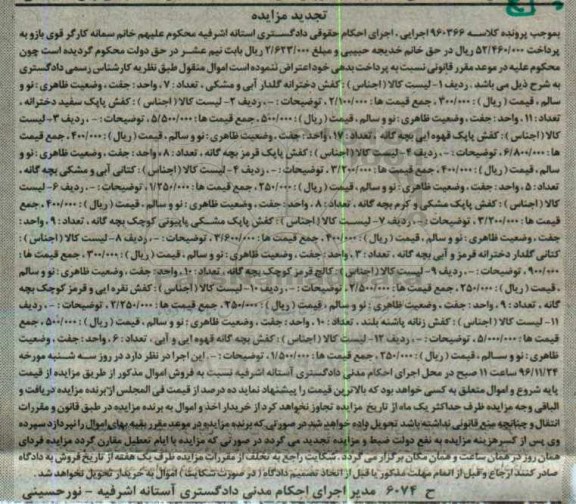 تجدید مزایده
بموجب پرونده کلاسه ۹۶۰۳۶۶ اجرایی ، اجرای احکام حقوقی دادگستری آستانه اشرفیه محکوم علیهم خانم سمانه کارگر قوی بازو به
پرداخت ۵۲/۴۶۰/۰۰۰ ریال در حق خانم خدیجه حبیبی و مبلغ ۲/۶۲۳/۰۰۰ ریال بابت نیم عشر در حق دولت محکوم گردیده است چون
محکوم علیه در موعد مقرر قانونی نسبت به پرداخت بدهی خود اعتراض ننموده است اموال منقول طبق نظریه کارشناس رسمی دادگستری
به شرح ذیل می باشد . ردیف ۱- لیست کالا ( اجناس ) : کفش دخترانه گلدار آبی و مشکی ، تعداد : ۷ ، واحد : جفت ، وضعیت ظاهری : نو و
سالم ، قیمت ( ریال ) : ۳۰۰/۰۰۰ ، جمع قیمت ها : ۲/۱۰۰/۰۰۰ ، توضیحات : -، ردیف ۲- لیست کالا ( اجناس ) : کفش پاپک سفید دخترانه ،
تعداد : ۱۱ ، واحد : جفت ، وضعیت ظاهری : نو و سالم ، قیمت ( ریال ) : ۵۰۰/۰۰۰ ، جمع قیمت ها : ۵/۵۰۰/۰۰۰ ، توضیحات : -، ردیف ۳- لیست
کالا ( اجناس ) : کفش پاپک قهوه ایی بچه گانه ، تعداد : ۱۷ ، واحد : جفت ، وضعیت ظاهری : نو و سالم ، قیمت ( ریال ) : ۴۰۰/۰۰۰ ، جمع قیمت
ها : ۶/۸۰۰/۰۰۰ ، توضیحات : -، ردیف ۴- لیست کالا ( اجناس ) : کفش پاپک قرمز بچه گانه ، تعداد : ۸ ، واحد : جفت ، وضعیت ظاهری : نو و
سالم ، قیمت ( ریال ) : ۴۰۰/۰۰۰ ، جمع قیمت ها : ۳/۲۰۰/۰۰۰ ، توضیحات : -، ردیف ۴- لیست کالا ( اجناس ) : کتانی آبی و مشکی بچه گانه ،
تعداد : ۵ ، واحد : جفت ، وضعیت ظاهری : نو و سالم ، قیمت ( ریال ) : ۲۵۰/۰۰۰ ، جمع قیمت ها : ۱/۲۵۰/۰۰۰ ، توضیحات : -، ردیف ۶- لیست
کالا ( اجناس ) : کفش پاپک مشکی و کرم بچه گانه ، تعداد : ۸ ، واحد : جفت ، وضعیت ظاهری : نو و سالم ، قیمت ( ریال ) : ۴۰۰/۰۰۰ ، جمع
قیمت ها : ۳/۲۰۰/۰۰۰ ، توضیحات : -، ردیف ۷- لیست کالا ( اجناس ) : کفش پاپک مشکی پاپیونی کوچک بچه گانه ، تعداد : ۹ ، واحد :
جفت ، وضعیت ظاهری : نو و سالم ، قیمت ( ریال ) : ۴۰۰/۰۰۰ ، جمع قیمت ها : ۳/۶۰۰/۰۰۰ ، توضیحات : -، ردیف ۸- لیست کالا ( اجناس ) :
کتانی گلدار دخترانه قرمز و آبی بچه گانه ، تعداد : ۳ ، واحد : جفت ، وضعیت ظاهری : نو و سالم ، قیمت ( ریال ) : ۳۰۰/۰۰۰ ، جمع قیمت ها :
۹۰۰/۰۰۰ ، توضیحات : -، ردیف ۹- لیست کالا ( اجناس ) : کالج قرمز کوچک بچه گانه ، تعداد : ۱۰ ، واحد : جفت ، وضعیت ظاهری : نو و سالم
، قیمت ( ریال ) : ۲۵۰/۰۰۰ ، جمع قیمت ها : ۲/۵۰۰/۰۰۰ ، توضیحات : -، ردیف ۱۰- لیست کالا ( اجناس ) : کفش نقره ایی و قرمز کوچک بچه
گانه ، تعداد : ۹ ، واحد : جفت ، وضعیت ظاهری : نو و سالم ، قیمت ( ریال ) : ۲۵۰/۰۰۰ ، جمع قیمت ها : ۲/۲۵۰/۰۰۰ ، توضیحات : -، ردیف
۱۱- لیست کالا ( اجناس ) : کفش زنانه پاشنه بلند ، تعداد : ۱۰ ، واحد : جفت ، وضعیت ظاهری : نو و سالم ، قیمت ( ریال ) : ۵۰۰/۰۰۰ ، جمع
قیمت ها : ۵/۰۰۰/۰۰۰ ، توضیحات : -، ردیف ۱۲- لیست کالا ( اجناس ) : کفش بچه گانه قهوه ایی و آبی ، تعداد : ۶ ، واحد : جفت ، وضعیت
ظاهری : نو و سالم ، قیمت ( ریال ) : ۲۵۰/۰۰۰ ، جمع قیمت ها : ۱/۵۰۰/۰۰۰ ، توضیحات : -، این اجرا در نظر دارد در روز سه شنبه مورخه
۹۶/۱۱/۲۴ ساعت ۱۱ صبح در محل اجرای احکام مدنی دادگستری آستانه اشرفیه نسبت به فروش اموال مذکور از طریق مزایده از قیمت
پایه شروع و اموال متعلق به کسی خواهد بود که بالاترین قیمت را پیشنهاد نماید ده درصد از قیمت فی المجلس از برنده مزایده دریافت و
الباقی وجه مزایده ظرف حداکثر یک ماه از تاریخ مزایده تجاوز نخواهد کرد از خریدار اخذ و اموال به برنده مزایده در طبق قانون و مقررات
انتقال و چنانچه منع قانونی نداشته باشد تحویل داده خواهد شد در صورتی که برنده مزایده در موعد مقرر بقیه بهای اموال را نپردازد سپرده
وی پس از کسر هزینه مزایده به نفع دولت ضبط و مزایده تجدید می گردد در صورتی که مزایده با ایام تعطیل مقارن گردد مزایده فردای
همان روز در همان ساعت و همان مکان برگزار می گردد . شکایت راجع به تخلف از مقررات مزایده ظرف یک هفته از تاریخ فروش به دادگاه
صادر کننده ارجاع و قبل از اتمام مهلت مذکور یا قبل از اتخاذ تصمیم دادگاه ( در صورت شکایت ) اموال به خریدار تحویل نخواهد شد .
ح ۶۰۷۴ مدیر اجرای احکام مدنی دادگستری آستانه اشرفیه - نورحسینی